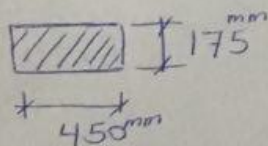 175mm
450mm